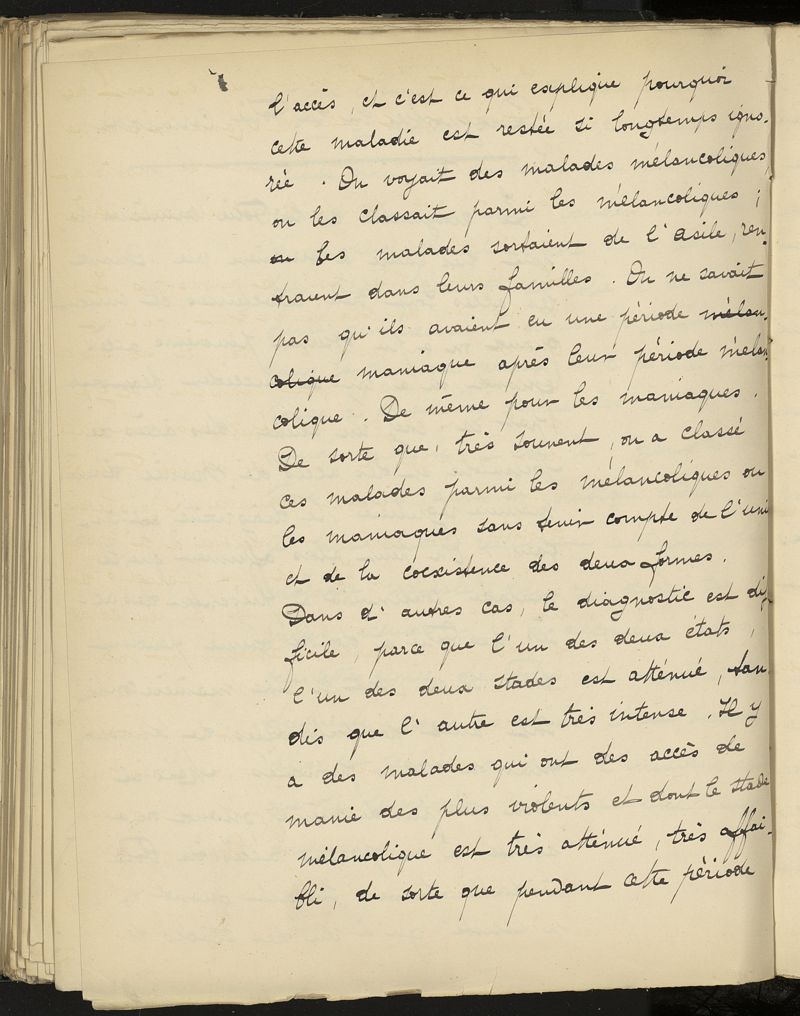 l'accès, et c'est ce qui explique pourquoi
cette maladie est restée si longtemps igno-
rée. On voyait des malades mélancoliques,
on les classait parmi les mélancoliques ;
on les malades sortaient de l'asile, ren-
traient dans leurs familles. On ne savait
pas qu'ils avaient eu une période mélan-
colique maniaque après leur période mélan-
colique. De même pour les maniaques.
De sorte que, très souvent, on a classé
ces malades parmi les mélancoliques ou
les maniaques sans tenir compte de l'uni
et de la coexistence des deux formes.
Dans d'autres cas, le diagnostic est dif-
ficile, parce que l'un des deux états,
l'un des deux stades est atténué, tan-
dis que l'autre est très intense. Il y
a des malades qui ont des accès de
manie des plus violents et dont le stade
mélancolique est très atténué, très affai-
bli, de sorte que pendant cette période